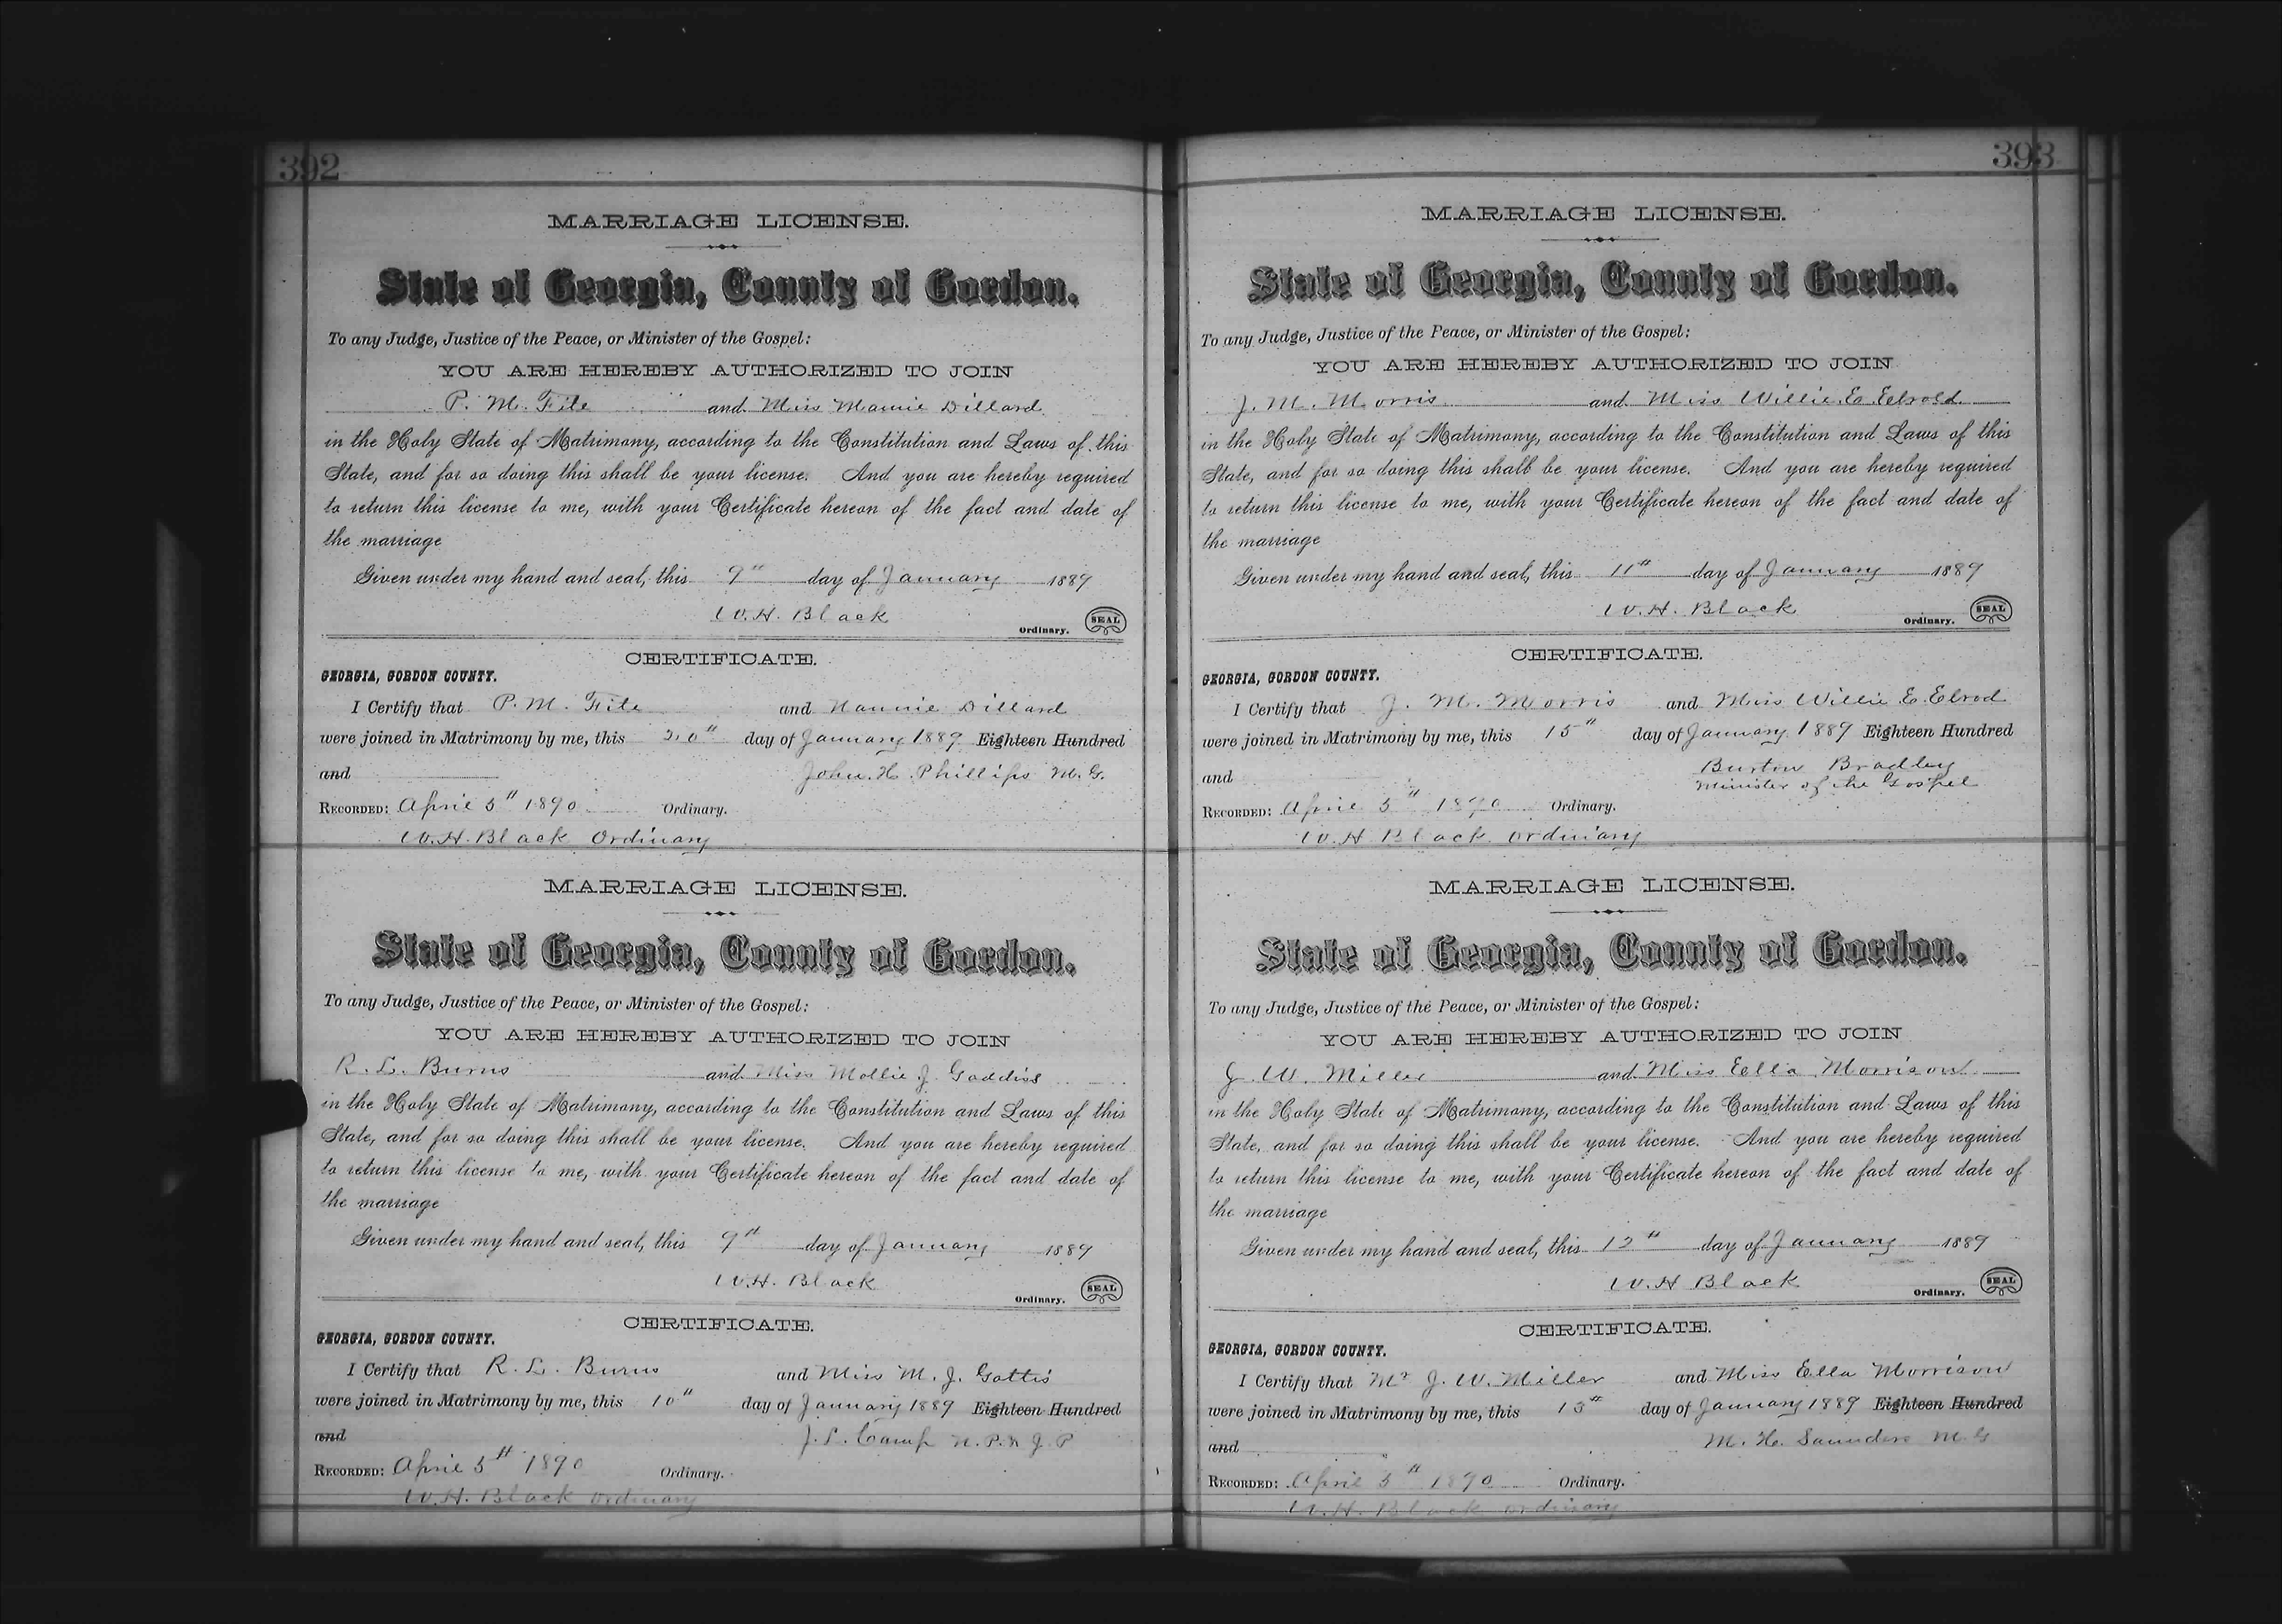 392
MARRIAGE LICENSE.
State of Georgia, County of Gordon.
To any Judge, Justice of the Peace, or Minister of the Gospel:
YOU ARE HEREBY AUTHORIZED TO JOIN
P. M. Fite and Miss Mamie Dillard
in the Holy State of Matrimony, according to the Constitution and Laws of this
State, and for so doing this shall be your license. And you are hereby required
to return this license to me, with your Certificate hereon of the fact and date of
the marriage
Given under my hand and seal, this 9th day of January 1889
W. H. Black
Ordinary. SEAL
CERTIFICATE.
GEORGIA, GORDON COUNTY.
I Certify that P. M. Fite and Nannie Dillard
were joined in Matrimony by me, this 20" day of January 1889 Eighteen Hundred
and John. H. Phillips M. G.
RECORDED: April 5th 1890 Ordinary.
W. H. Black Ordinary
MARRIAGE LICENSE.
State of Georgia, County of Gordon.
To any Judge, Justice of the Peace, or Minister of the Gospel:
YOU ARE HEREBY AUTHORIZED TO JOIN
R. L. Burns and Miss Mollie J. Gaddiss
in the Holy State of Matrimony, according to the Constitution and Laws of this
State, and for so doing this shall be your license. And you are hereby required
to return this license to me, with your Certificate hereon of the fact and date of
the marriage
Given under my hand and seal, this 9th day of January 1889
W. H. Black
Ordinary. SEAL
CERTIFICATE.
GEORGIA, GORDON COUNTY.
I Certify that R. L. Burns and Miss M. J. Gattis
were joined in Matrimony by me, this 10" day of January 1889 Eighteen Hundred
and J. L. Camp N. P. & J. P
RECORDED: April 5th 1890 Ordinary.
W. H. Black Ordinary
393
MARRIAGE LICENSE.
State of Georgia, County of Gordon.
To any Judge, Justice of the Peace, or Minister of the Gospel:
YOU ARE HEREBY AUTHORIZED TO JOIN
J. M. Morris and Miss Willie E. Eelrold
in the Holy State of Matrimony, according to the Constitution and Laws of this
State, and for so doing this shall be your license. And you are hereby required
to return this license to me, with your Certificate hereon of the fact and date of
the marriage
Given under my hand and seal, this 11th day of January 1889
W. H. Black
Ordinary. SEAL
CERTIFICATE.
GEORGIA, GORDON COUNTY.
I Certify that J. M. Morris and Miss Willie E. Elrod
were joined in Matrimony by me, this 15" day of January 1889 Eighteen Hundred
and Burton Bradley
Minister of the Gospel
RECORDED: April 5th 1890 Ordinary.
W. H Black Ordinary
MARRIAGE LICENSE.
State of Georgia, County of Gordon.
To any Judge, Justice of the Peace, or Minister of the Gospel:
YOU ARE HEREBY AUTHORIZED TO JOIN
J. W. Miller and Miss Eella Morrison
in the Holy State of Matrimony, according to the Constitution and Laws of this
State, and for so doing this shall be your license. And you are hereby required
to return this license to me, with your Certificate hereon of the fact and date of
the marriage
Given under my hand and seal, this 12th day of January 1889
W. H Black
Ordinary. SEAL
CERTIFICATE.
GEORGIA, GORDON COUNTY.
I Certify that Mr J. W. Miller and Miss Ella Morrison
were joined in Matrimony by me, this 13th day of January 1889 Eighteen Hundred
and M. H. Saunders M. G
RECORDED: April 5th 1890 Ordinary.
W. H. Black Ordinary